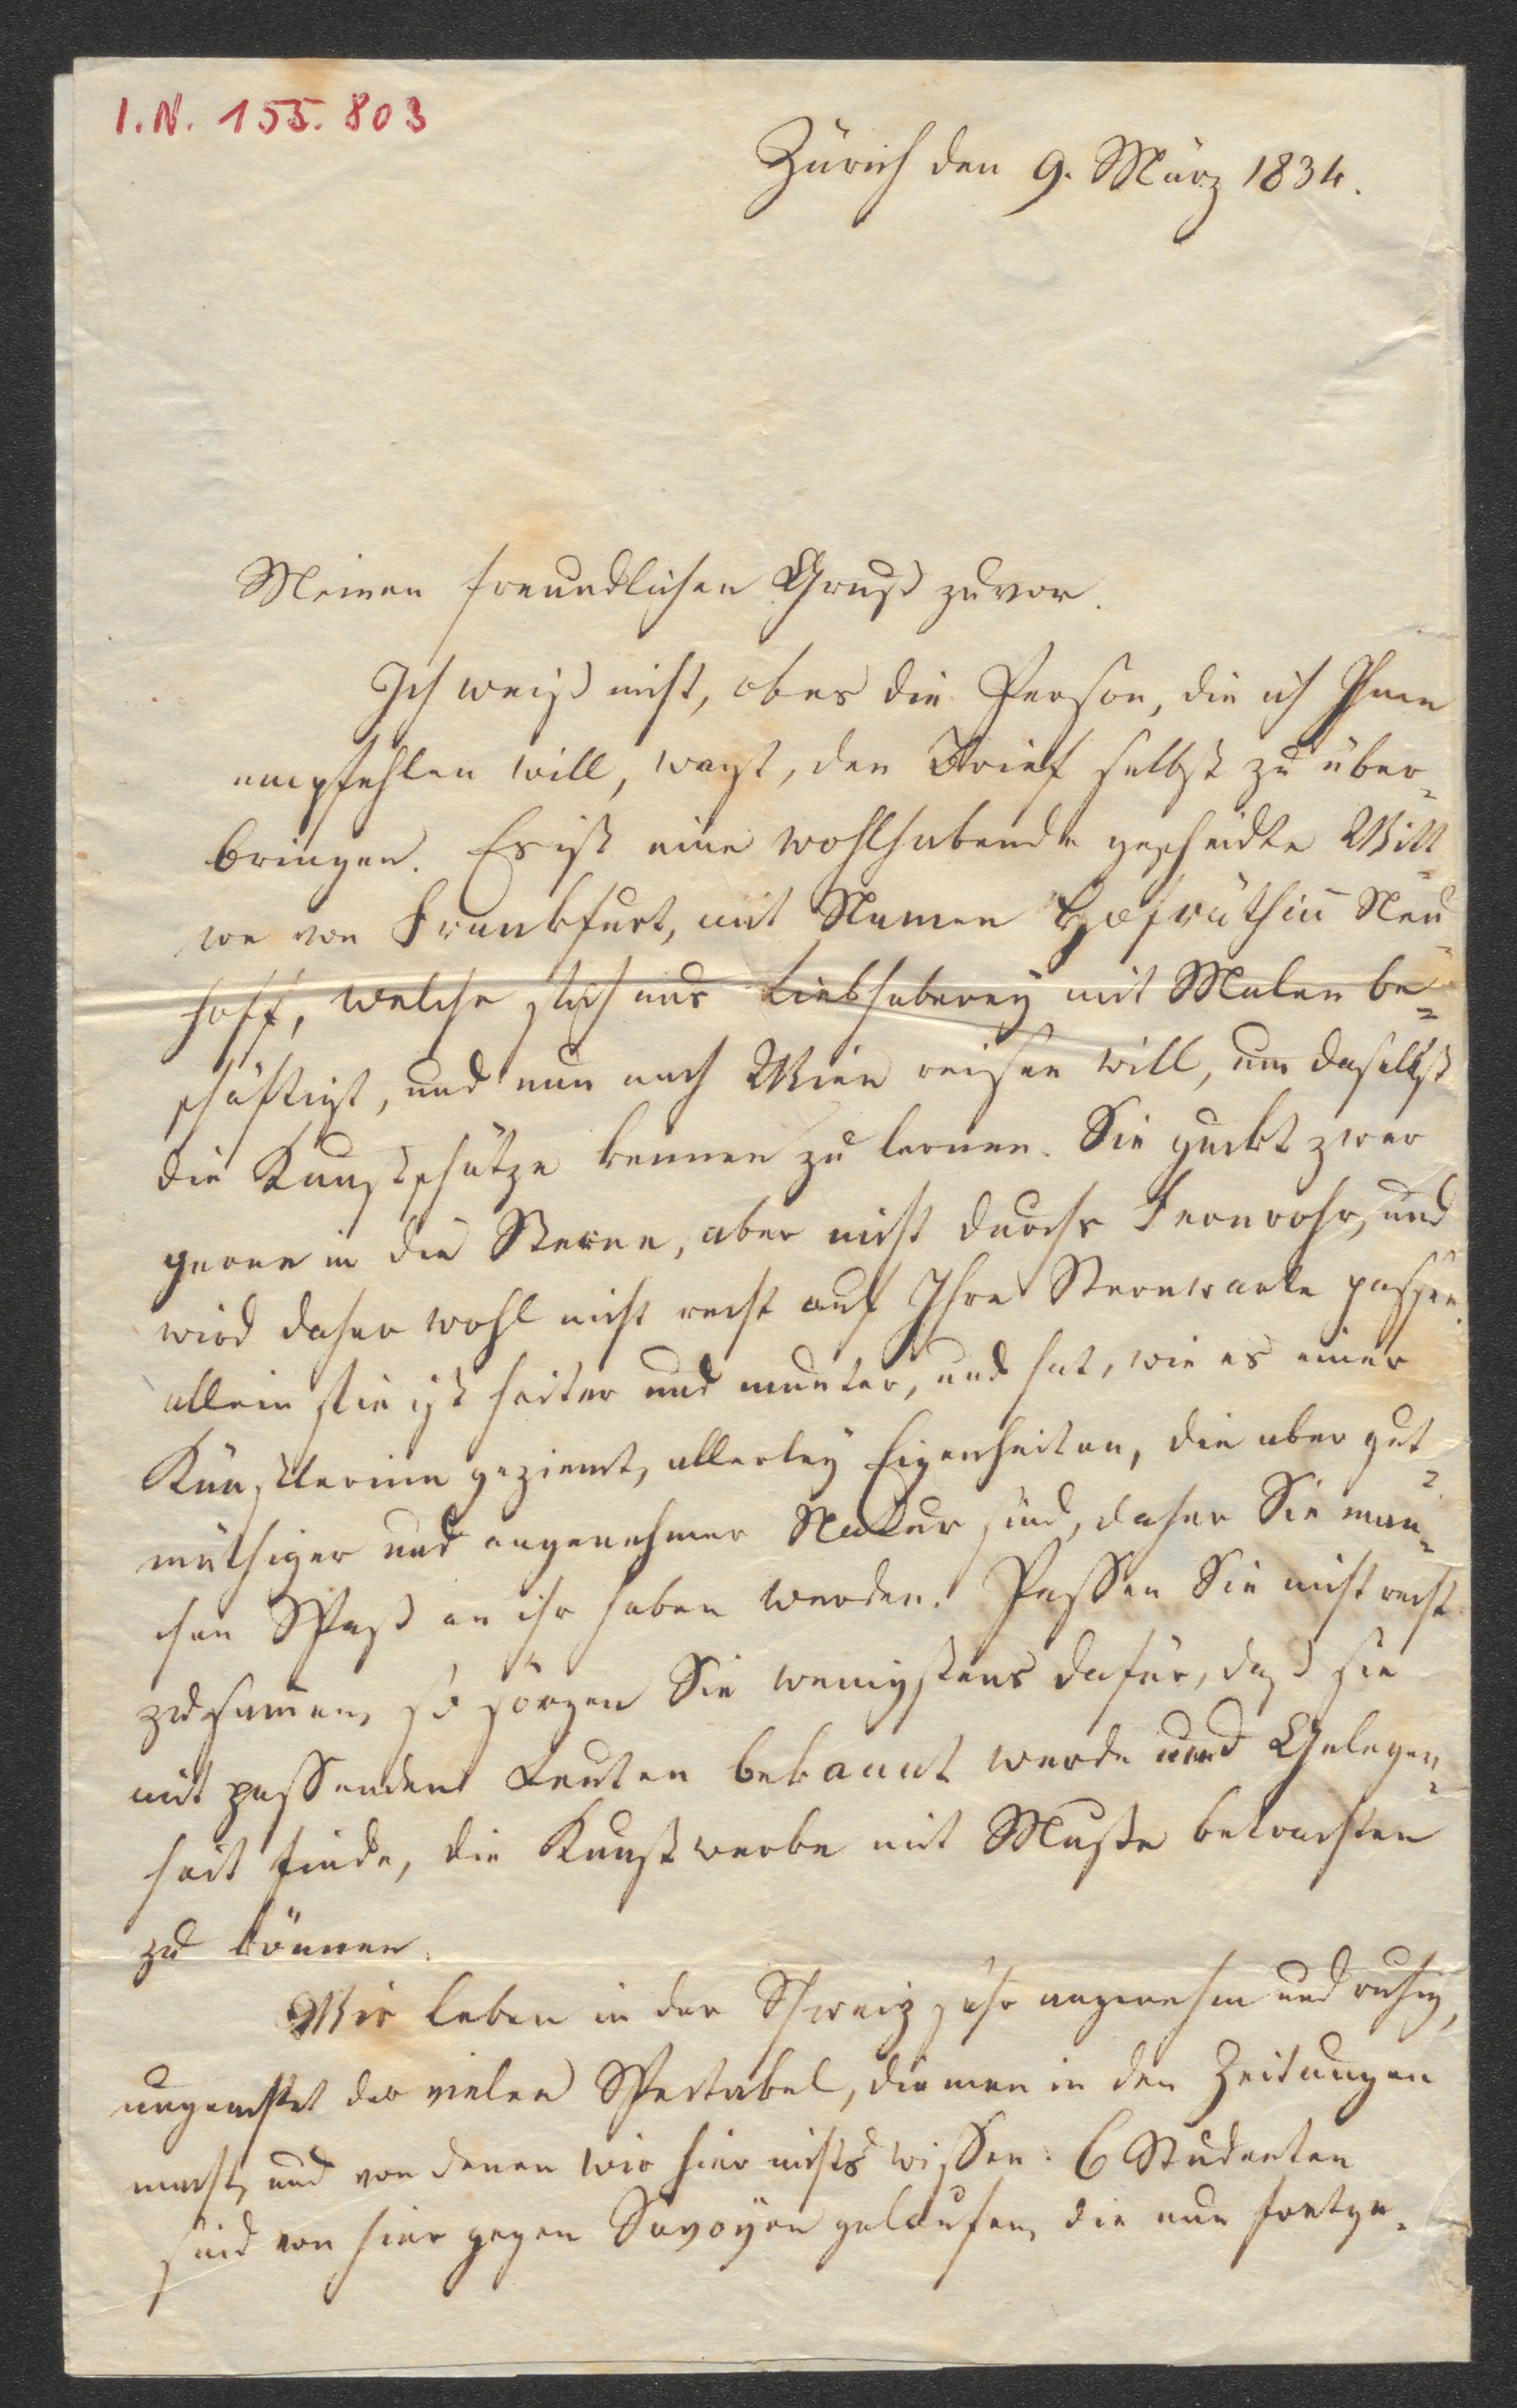 I.N. 155.803
Zürich den 9. März 1834.
Meinen freundlichen Gruß zuvor.
Ich weiß nicht, ob es die Person, die ich Ihnen
empfehlen will, wagt, den Brief selbst zu über-
bringen. Es ist eine wohlhabende gescheidte Witt-
we von Frankfurt, mit Namen Hofräthin̄ Neu-
hoff, welche sich aus Liebhaberey mit Malen be-
schäftigt, und nun nach Wien reisen will, um daselbst
die Kunstschätze kennen zu lernen. Sie guckt zwar
gerne in die Sterne, aber nicht durchs Fernrohr, und
wird daher wohl nicht recht auf Ihre Sternwarte passen.
allein sie ist heiter und munter, und hat, wie es einer
Künstlerinn geziemt, allerley Eigenheiten, die aber gut-
müthiger und angenehmer Natur sind, daher Sie man-
chen Spaß an ihr haben werden. Passen Sie nicht recht
zusam̄en, so sorgen Sie wenigstens dafür, daß sie
mit passenden Leuten bekannt werde und Gelegen-
heit finde, die Kunstwerke mit Muße betrachten
zu können.
Wir leben in der Schweiz sehr angenehm und ruhig,
ungeachtet der vielen Spektakel, die man in den Zeitungen
macht, und von denen wir hier nichts wissen. 6 Studenten
sind von hier gegen Savoyen gelaufen, die nun fortge-